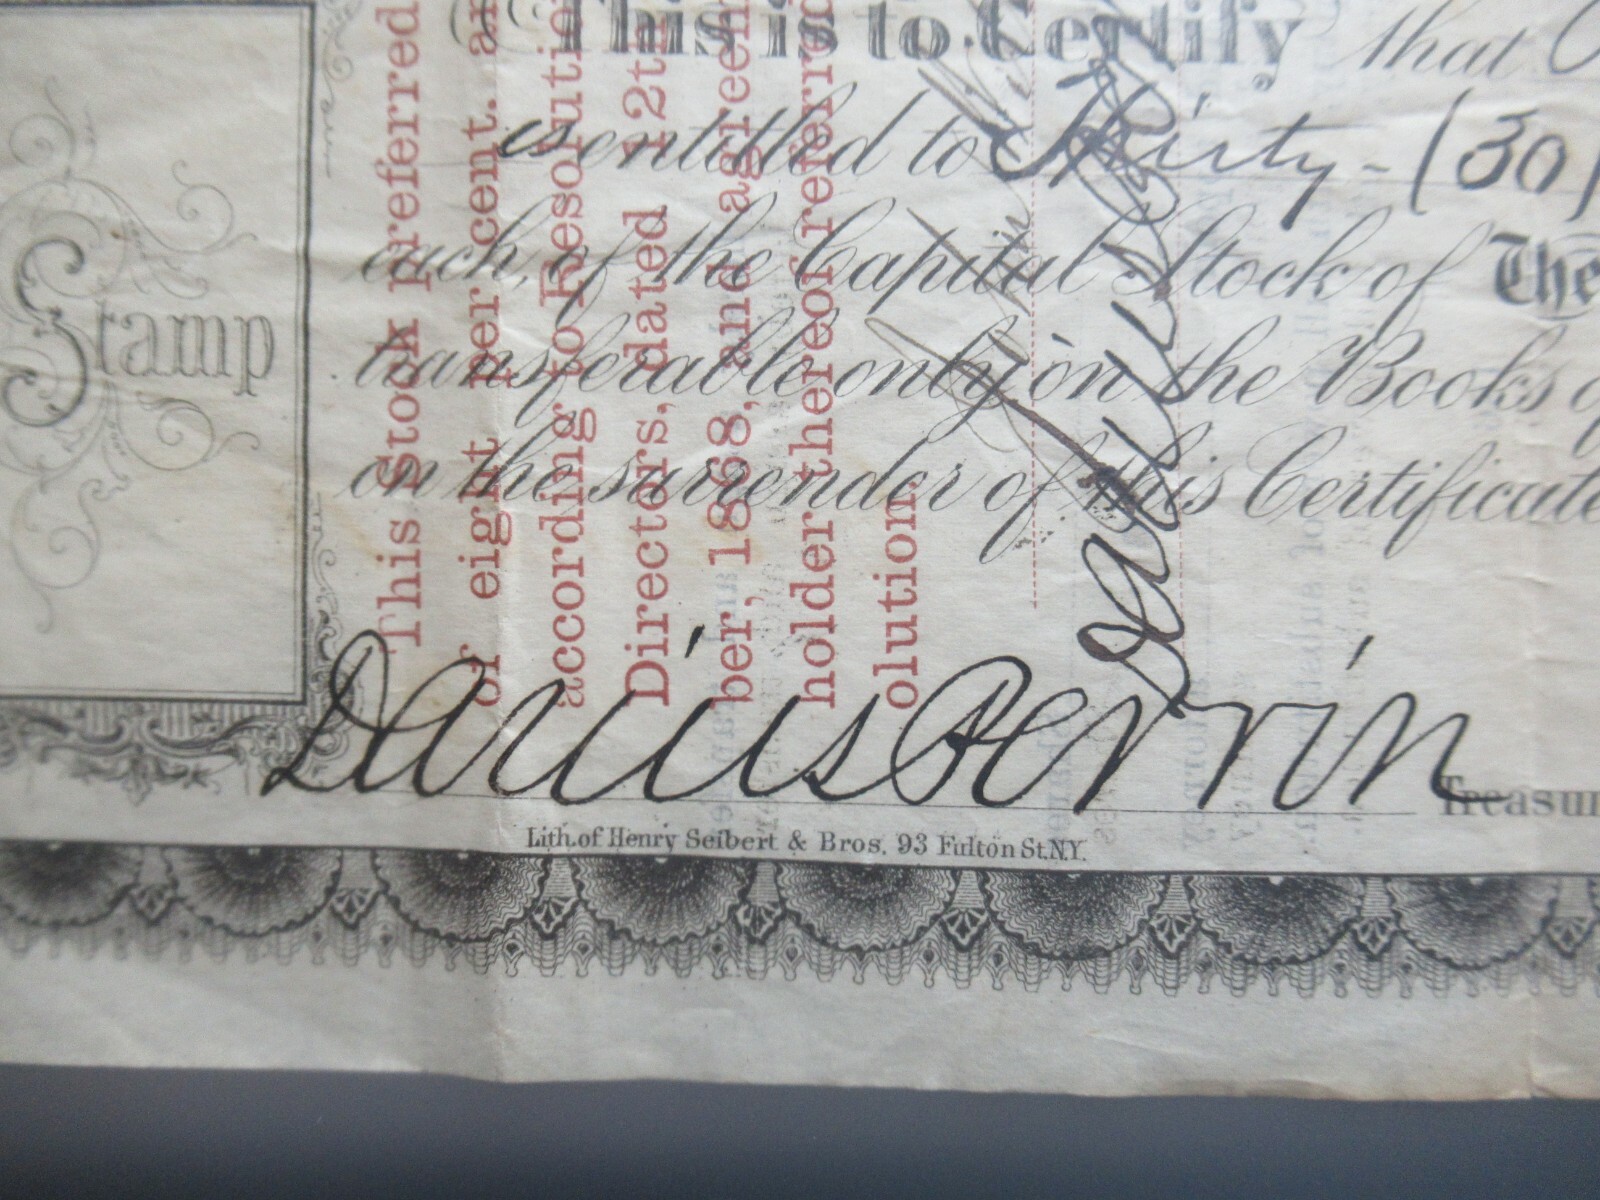 This is to Certify that
is entitled to Thirty - (30)
each, of the Capital Stock of The
transferable only on the Books of
on the surrender of this Certificate
Stamp
This Stock preferred
of eight per cent. an
according to Resolutio
Directors, dated 12th
ber, 1868, and agreem
holder thereof referred
olution.
Darius Perrin
Treasur
Lith. of Henry Seibert & Bros. 93 Fulton St. N.Y.